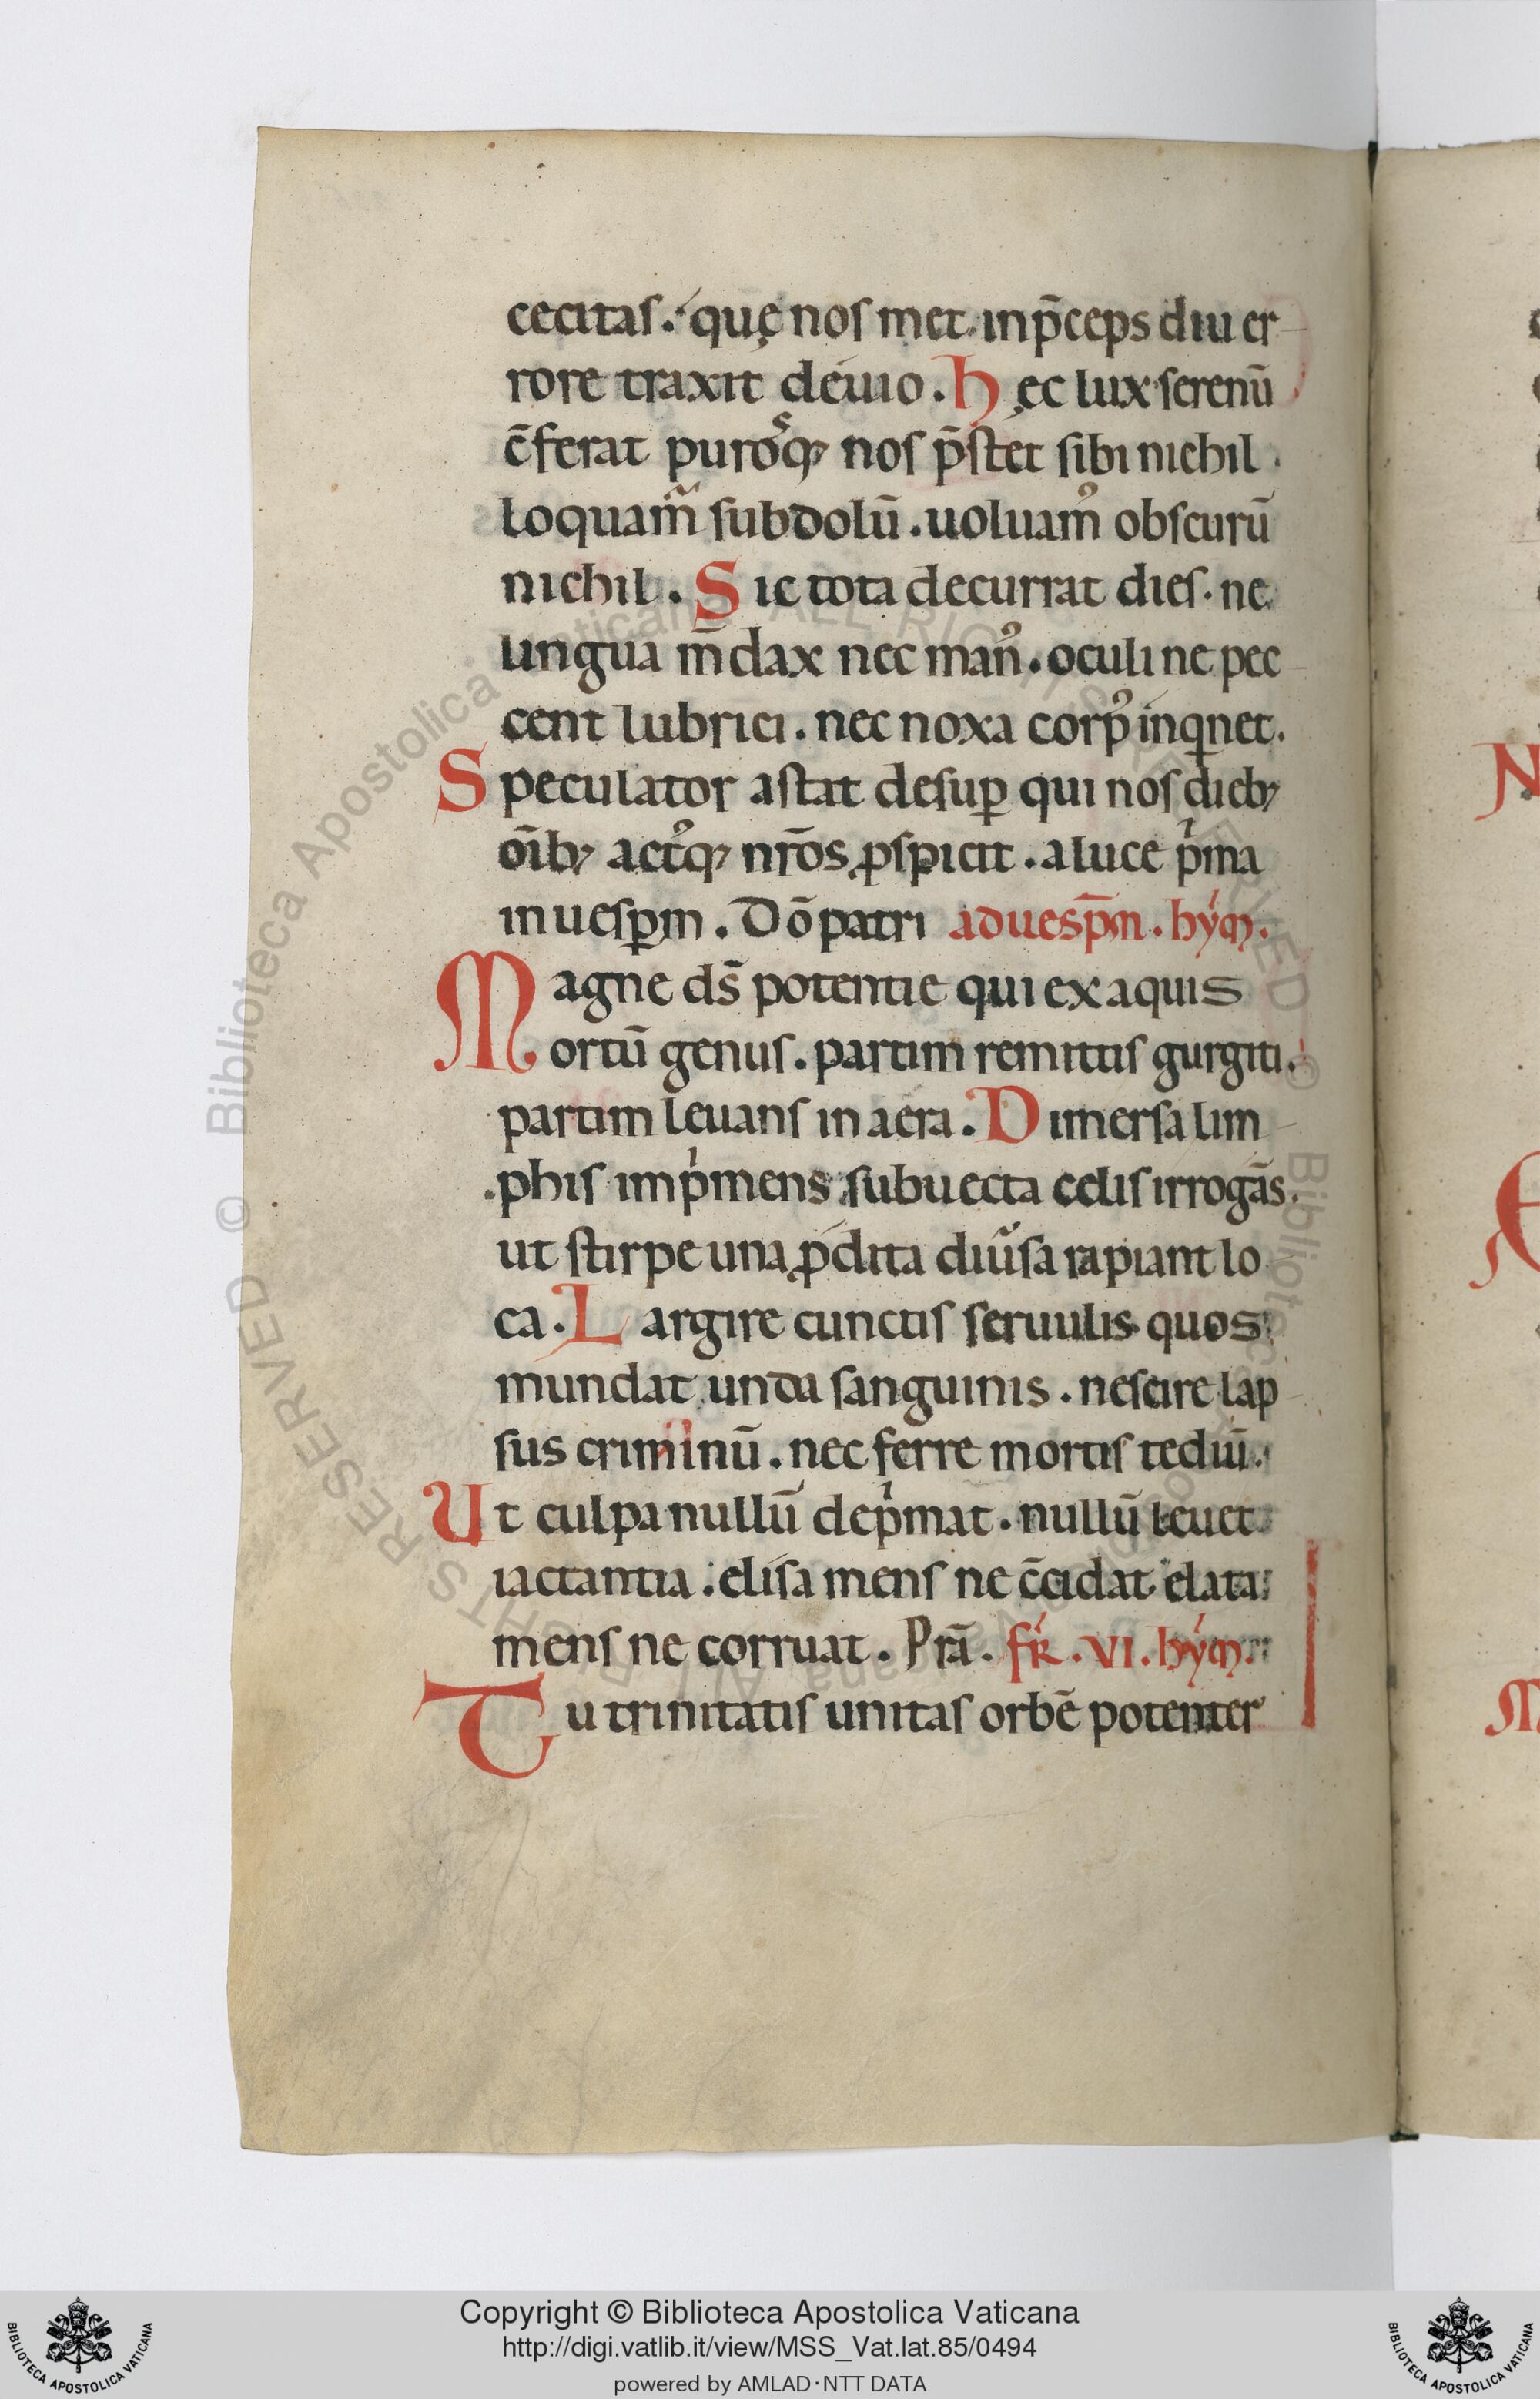 cecitas. quę nos met in p̄ceps diu er-
rore traxit deuio. Hęc lux serenū
c̄ferat purosq; nos p̄stet sibi nichil
loquam̄ subdolū. uoluam᷒ obscurū
nichil. Sic tota decurrat dies. ne
lingua m̄dax nec man᷒. oculi ne pec-
cent lubrici. nec noxa corp᷒ inqnet.
Speculator astat desuꝑ qui nos dieb;
oīb; act᷒q; nr̄os ꝓspicit. a luce pⁱma
in uesꝑm. Dō patri ad uesp̄m. hẏm.
Magne ds̄ potentie qui ex aquis
ortū genus. partim remittis gurgiti.
partim leuans in aera. Dimersa lim-
phis impⁱmens subuecta celis irrogās.
ut stirpe una ꝓdita diu̓sa rapiant lo
ca. Largire cunctis seruulis quos
mundat unda sanguinis. nescire lap-
sus criminū. nec ferre mortis tediū.
Ut culpa nullū depⁱmat. nullū leuet
iactantia: elisa mens ne c̄cidat elata
mens ne corruat. Prā. fr̄. VI. hẏm.
Tu trinitatis unitas orbē potenter
Copyright © Biblioteca Apostolica Vaticana
http://digi.vatlib.it/view/MSS_Vat.lat.85/0494
powered by AMLAD·NTT DATA